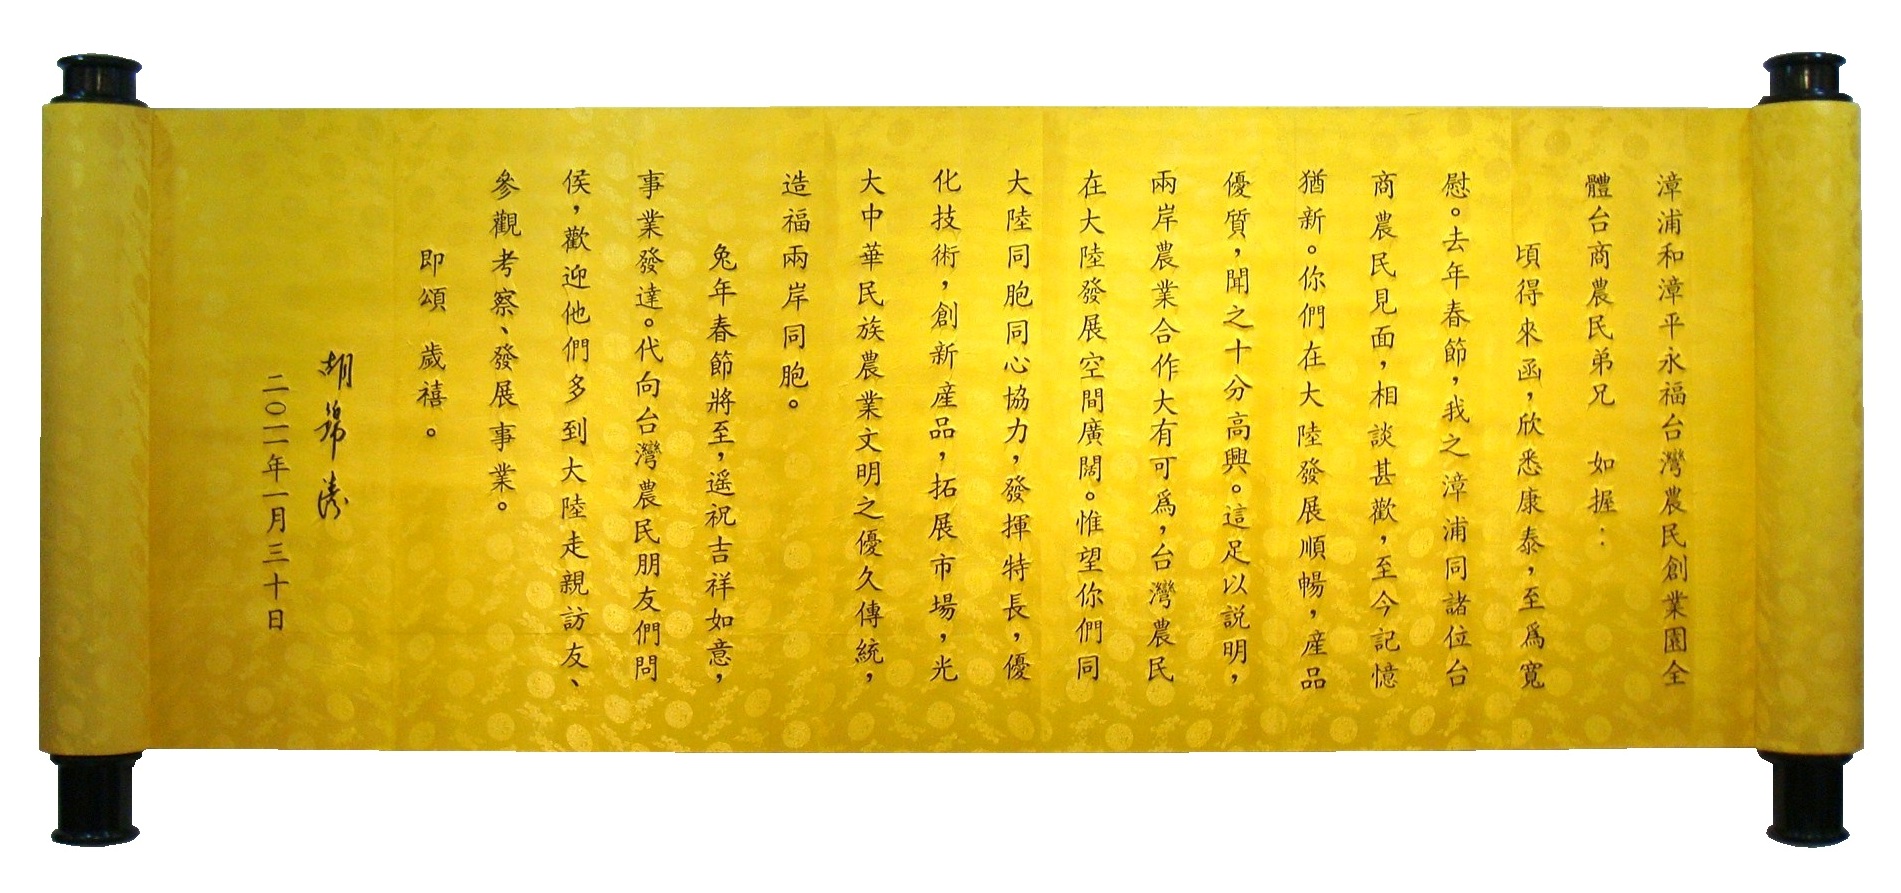 漳浦和漳平永福台灣農民創業園全
體台商農民弟兄　如握：
頃得來函，欣悉康泰，至爲寬
慰。去年春節，我之漳浦同諸位台
商農民見面，相談甚歡，至今記憶
猶新。你們在大陸發展順暢，産品
優質，聞之十分高興。這足以説明，
兩岸農業合作大有可爲，台灣農民
在大陸發展空間廣闊。惟望你們同
大陸同胞同心協力，發揮特長，優
化技術，創新産品，拓展市場，光
大中華民族農業文明之優久傳統，
造福兩岸同胞。
兔年春節將至，遥祝吉祥如意，
事業發達。代向台灣農民朋友們問
侯，歡迎他們多到大陸走親訪友、
參觀考察、發展事業。
即頌　歲禧。
胡錦濤
二〇一一年一月三十日